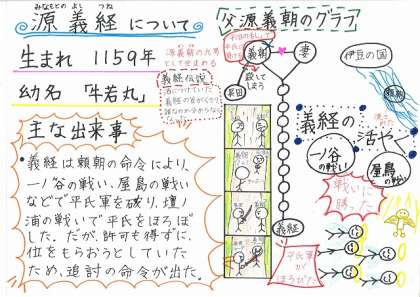 みなもとの よし つね
源義経について
生まれ 1159年
幼名「牛若丸」
源義朝の九男
として生まれる
義経伝説
主な出来事
・義経は頼朝の命令により、
一ノ谷の戦い、屋島の戦い
などで平氏軍を破り、壇ノ
浦の戦いで平氏をほろぼ
した。だが、許可も得ずに、
位をもらおうとしていた
ため、追討の命令が出た。
父源義朝のグラフ
義朝
妻
殺して
しまう
長田
義経
平氏軍
が
ほろびた
伊豆の国
頼朝
義経の
活や
一ノ谷
の戦い
屋島
の戦い
戦いに
勝った